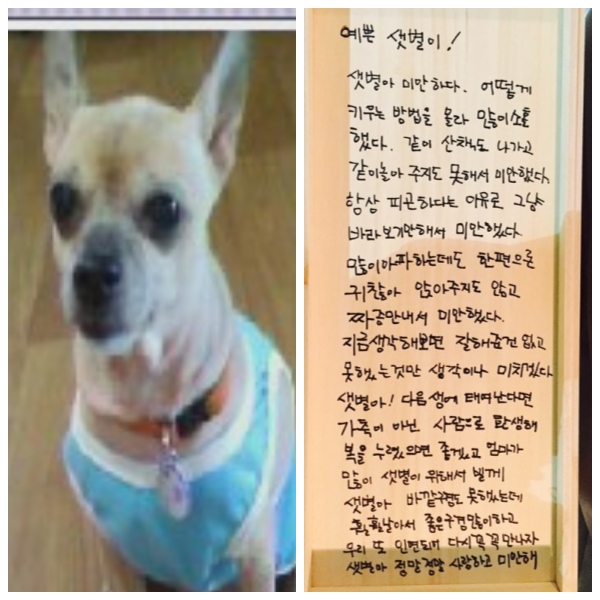 예쁜 샛별이!
샛별아 미안하다. 어떻게
키우는 방법을 몰라 많이소홀
했다. 같이 산책도 나가고
같이놀아 주지도 못해서 미안했다.
항상 피곤하다는 이유로 그냥
바라보기만해서 미안했다.
많이아파하는데도 한편으론
귀찮아 안아주지도 않고
짜증만내서 미안했다.
지금생각해보면 잘해준건 없고
못했는것만 생각이나 미치겠다
샛별아! 다음생에 태여난다면
가족이 아닌 사람으로 환생해
복을 누렸으면 좋겠고 엄마가
많이 샛별이 위해서 빌께
샛별아 바깥구경도 못했는데
훨훨날아서 좋은구경많이하고
우리 또 인연되어 다시꼭꼭만나자
샛별아 정말정말 사랑하고 미안해